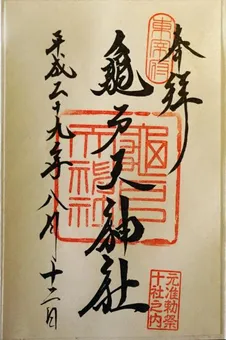 奉拝
東宰府
亀戸天神社
亀戸天神社
元准勅祭
十社之内
平成二十九年八月十二日